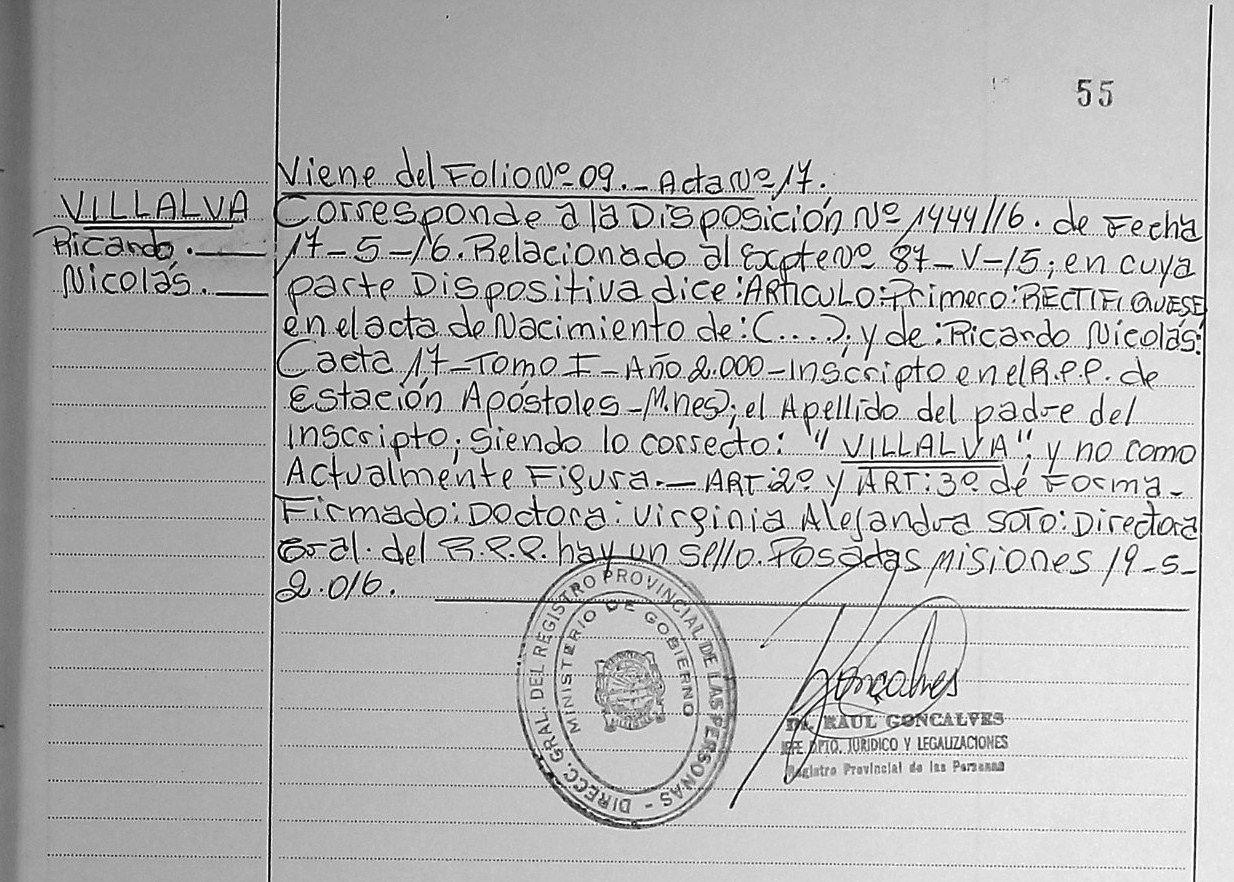 55
VILLALVA
Ricardo.
Nicolás.
Viene del Folio Nº 09.- Acta Nº 17.
Corresponde a la Disposición Nº 1444/16. de Fecha
17-5-16. Relacionado al Expte Nº 87-V-15; en cuya
parte Dispositiva dice: ARTICULO: Primero: RECTIFIQUESE
en el acta de Nacimiento de: (....); y de: Ricardo Nicolás:
(acta 17-Tomo I-Año 2.000-Inscripto en el R.P.P. de
Estación Apóstoles-M.nes); el Apellido del padre del
Inscripto; siendo lo correcto: "VILLALVA"; y no como
Actualmente Figura.- ART:2º y ART:3º de Forma-
Firmado: Doctora: Virginia Alejandra SOTO: Directora
Gral. del R.P.P. hay un sello. Posadas Misiones 19-5-
2.016.
DIRECC. GRAL. DEL REGISTRO PROVINCIAL DE LAS PERSONAS -
MINISTERIO DE GOBIERNO
Goncalves
Dr. RAUL GONCALVES
JEFE DPTO. JURIDICO Y LEGALIZACIONES
Registro Provincial de las Personas